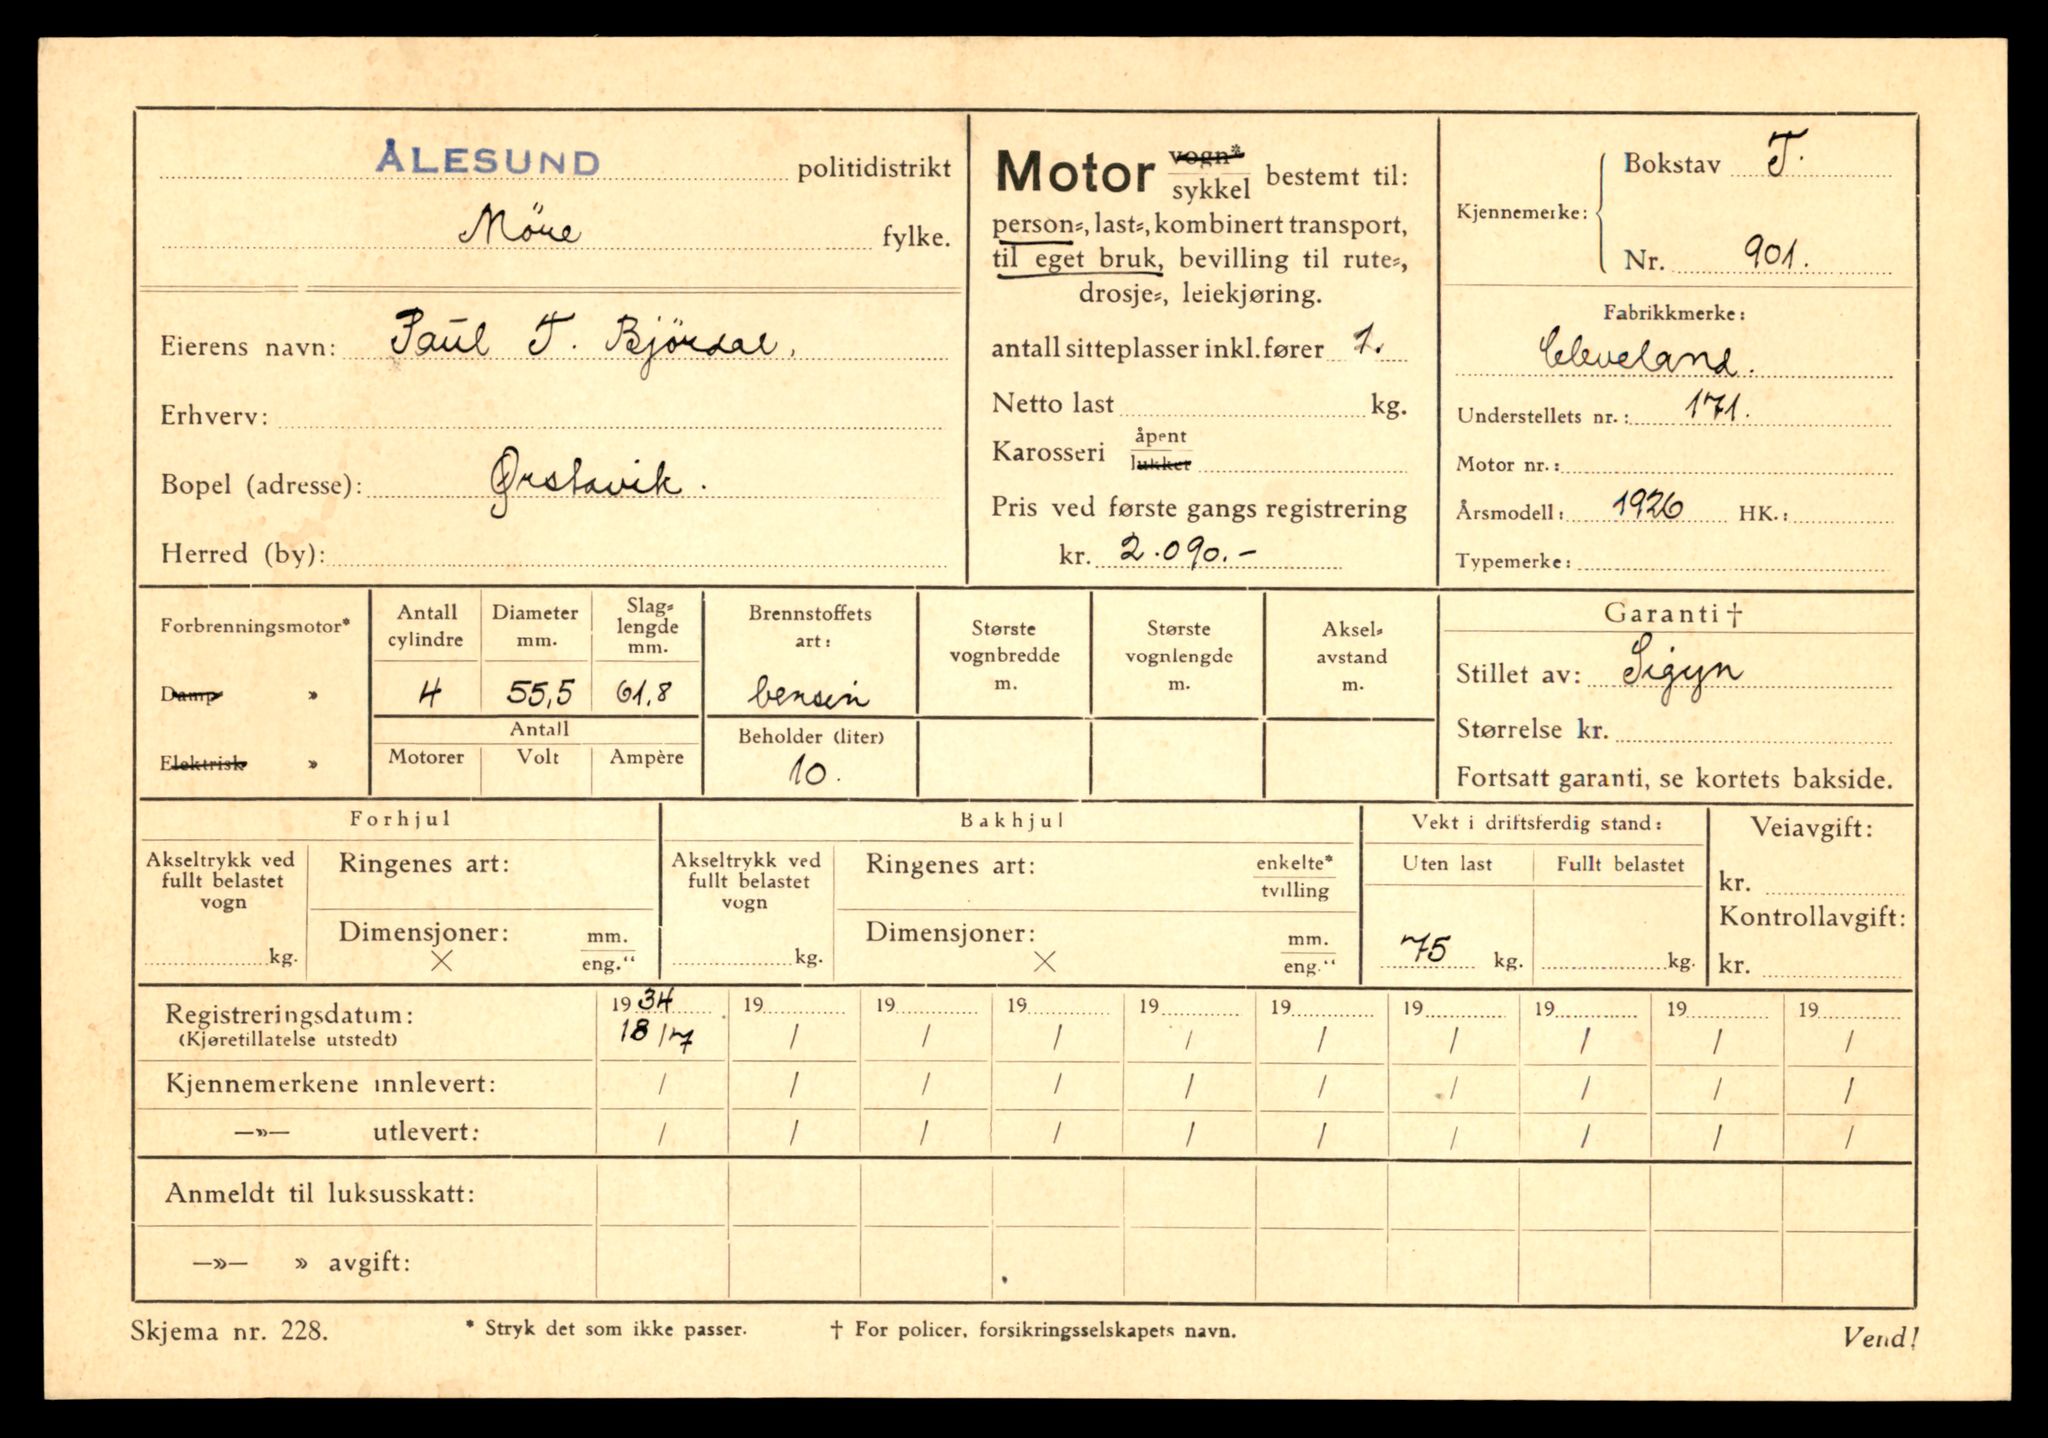 ÅLESUND politidistrikt
Möre fylke.
Eierens navn: Paul T. Björdal.
Erhverv:
Bopel (adresse): Ørstavik.
Herred (by):
Motor vogn* sykkel bestemt til:
person-, last-, kombinert transport,
til eget bruk, bevilling til rute-,
drosje-, leiekjøring.
antall sitteplasser inkl. fører 1.
Netto last kg.
Karosseri åpent lukket
Pris ved første gangs registrering
kr. 2.090.-
Kjennemerke: Bokstav T.
Nr. 901.
Fabrikkmerke:
Cleveland.
Understellets nr.: 171.
Motor nr.:
Årsmodell: 1926 HK.:
Typemerke:
Forbrenningsmotor*
Damp »
Elektrisk »
Antall cylindre
Diameter mm.
Slaglengde mm.
4 55,5 61,8
Antall
Motorer Volt Ampère
Brennstoffets art:
bensin
Beholder (liter)
10.
Største vognbredde m.
Største vognlengde m.
Akselavstand m.
Garanti †
Stillet av: Sigyn
Størrelse kr.
Fortsatt garanti, se kortets bakside.
Forhjul
Akseltrykk ved fullt belastet vogn
kg.
Ringenes art:
Dimensjoner: mm. eng."
×
Bakhjul
Akseltrykk ved fullt belastet vogn
kg.
Ringenes art: enkelte* tvilling
Dimensjoner: mm. eng."
×
Vekt i driftsferdig stand:
Uten last Fullt belastet
75 kg. kg.
Veiavgift:
kr.
Kontrollavgift:
kr.
Registreringsdatum: 1934 19 19 19 19 19 19 19 19 19
(Kjøretillatelse utstedt) 18/7 / / / / / / / / /
Kjennemerkene innlevert: / / / / / / / / / /
—»— utlevert: / / / / / / / / / /
Anmeldt til luksusskatt:
—»— » avgift:
Skjema nr. 228. * Stryk det som ikke passer. † For policer, forsikringsselskapets navn. Vend!